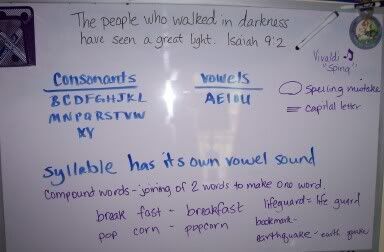 The people who walked in darkness
have seen a great light. Isaiah 9:2
Vivaldi
"Spring"
Consonants
BCDFGHJKL
MNPQRSTVW
XY
Vowels
AEIOU
spelling mistake
capital letter
syllable has its own vowel sound
Compound words - joining of 2 words to make one word.
break fast - breakfast
pop corn - popcorn
lifeguard = life guard
bookmark -
earthquake - earth quake